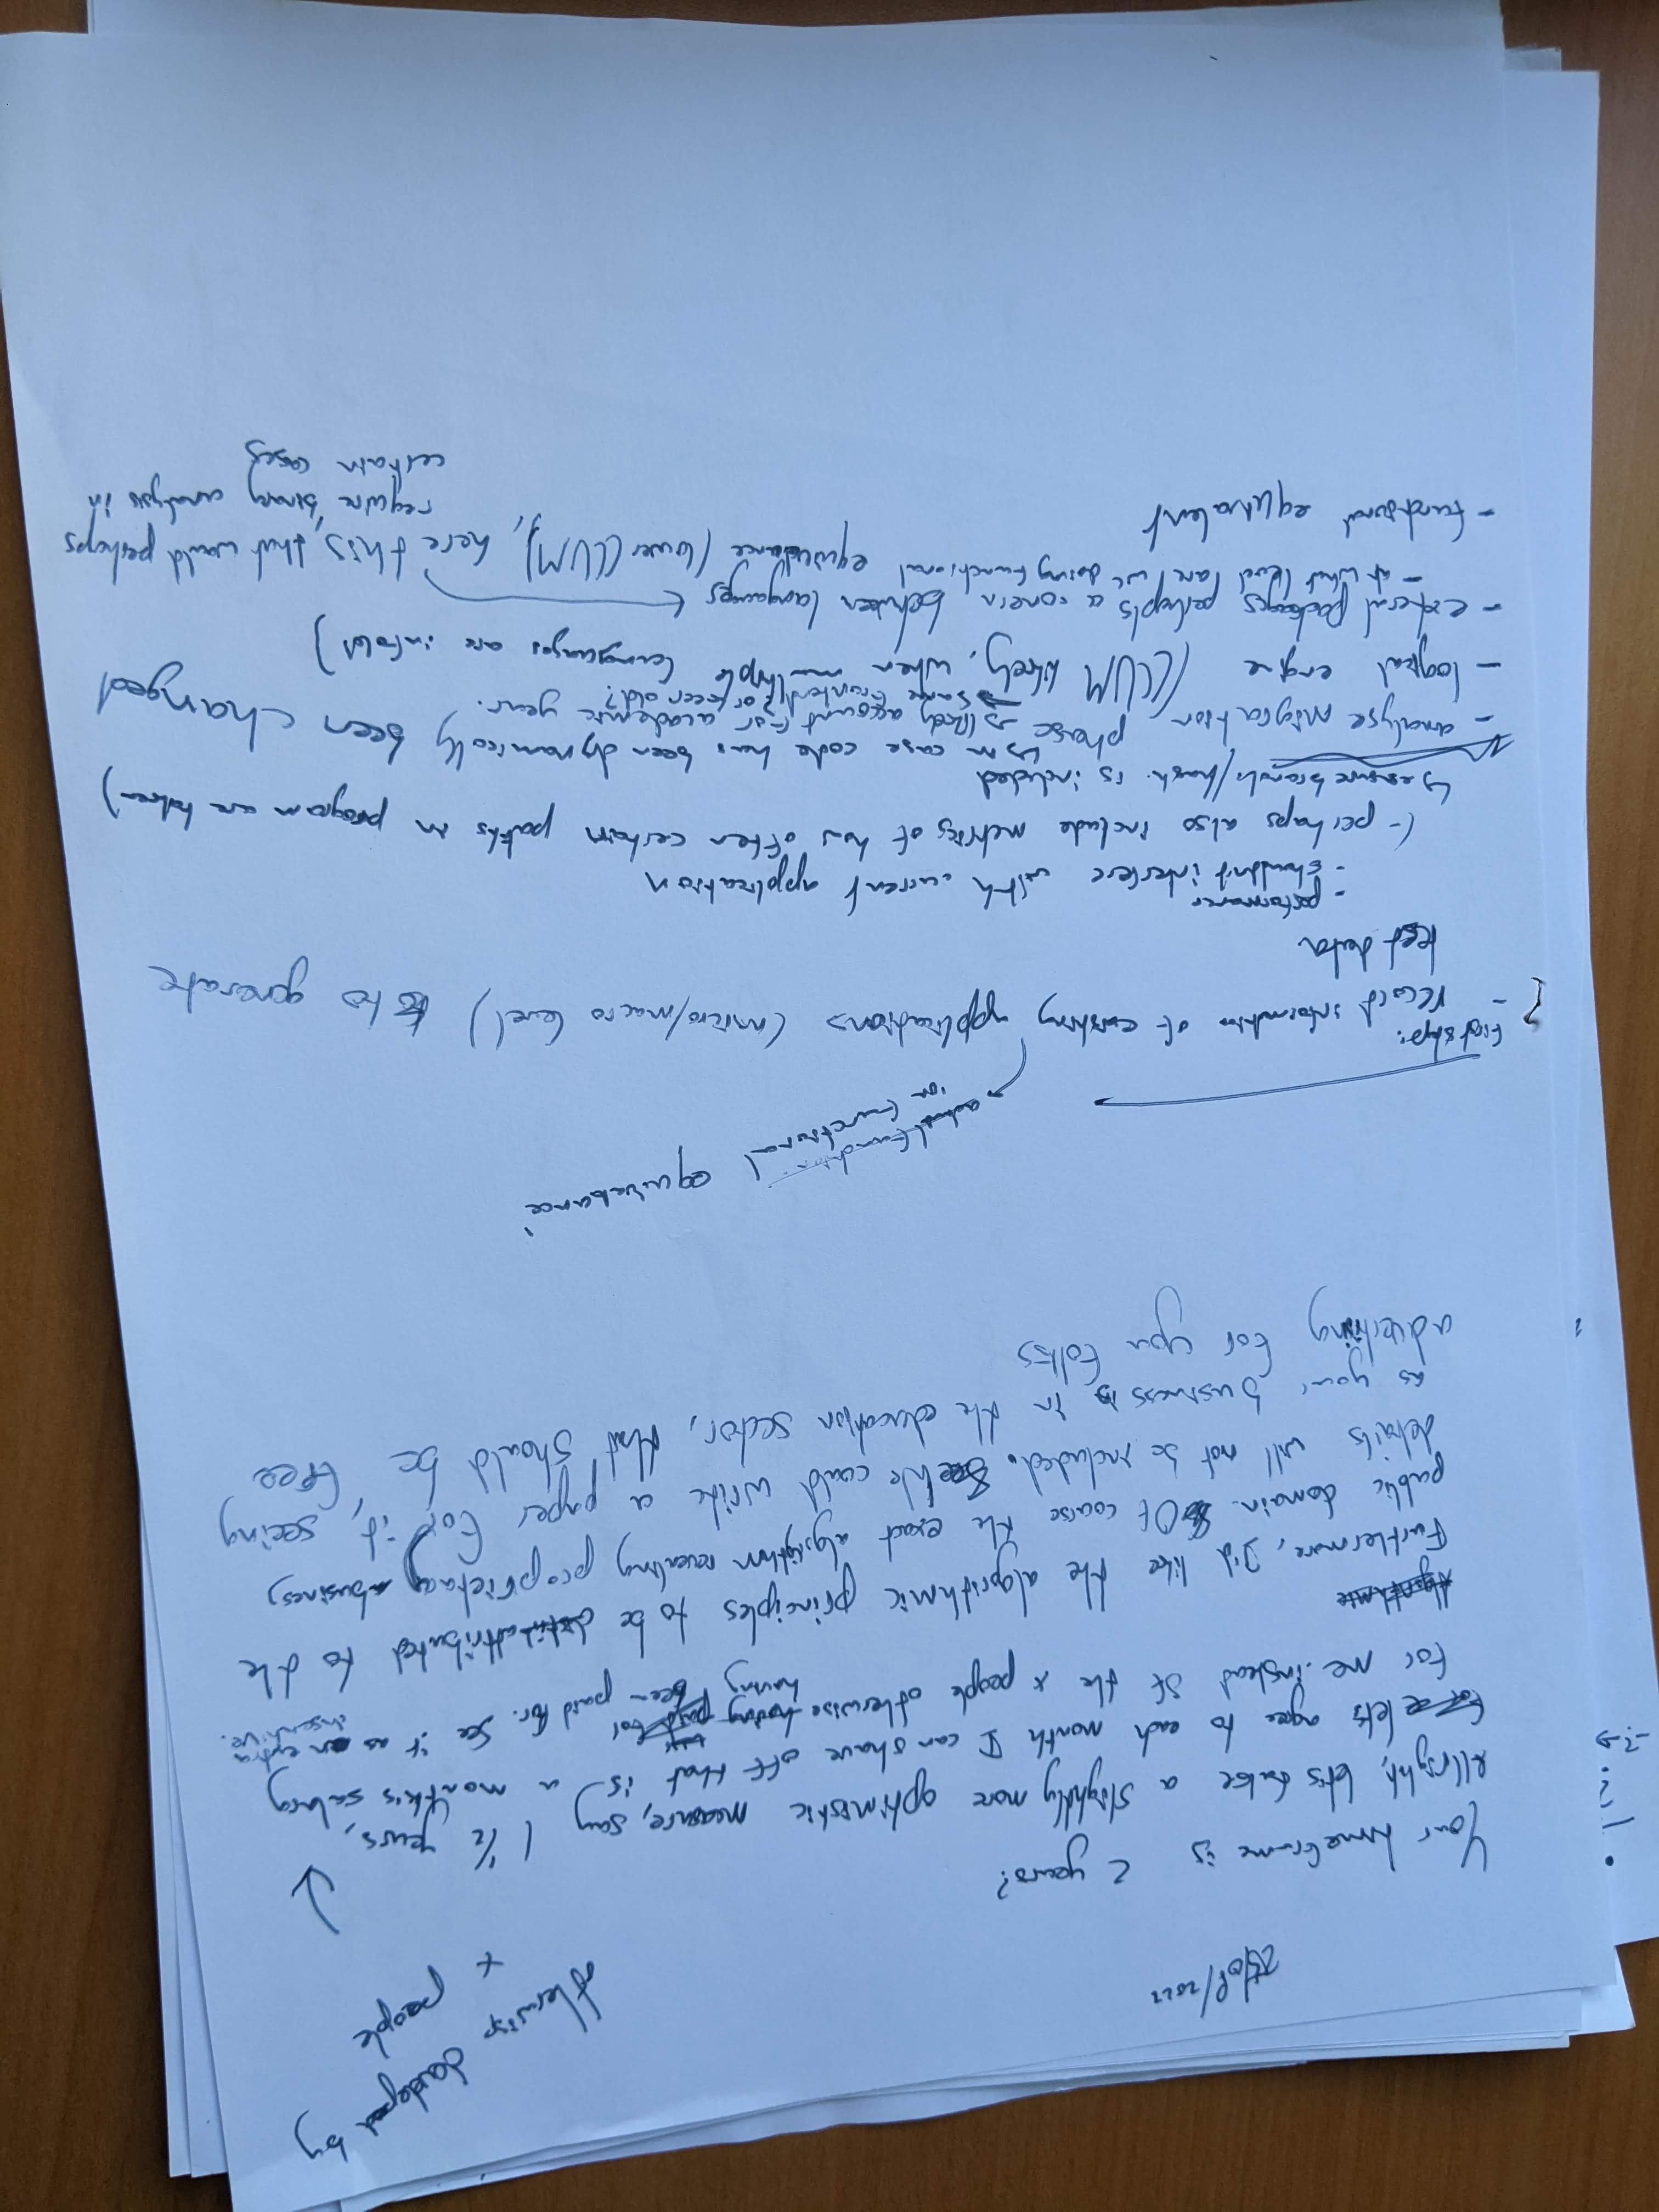 otherwise
developed by
x people
2022
Your timeframe is 2 years?
allright, let's take a slightly more optimistic measure, say 1 1/2 years,
let's agree to each month I can shave off that is a months salary
for me instead of the x people otherwise having been paid for. See it as an extra
incentive.
Furthermore, I'd like the algorithmic principles to be attributed to the
public domain. Of course the exact algorithm revealing proprietary business
details will not be included. We could write a paper for it, seeing
as your business is in the education sector, that should be free
advertising for you folks
equivalence
or functional
First step:
- record information of existing applications (micro/macro level) to generate
test data
- performance
- shouldn't interfere with current application
(- perhaps also include metrics of how often certain paths in program are taken)
↳ ensure branch/hash is included
↳ in case code has been dynamically been changed
- analyse migration phase → likely account for academic year.
→ same frontend? or keep old?
- logical engine (LLVM likely, when multiple languages are involved)
- external packages perhaps a concern between languages
- at what level are we doing functional equivalence (lower (LLVM), here this, that would perhaps
require binary analysis in
certain cases
- functional equivalent